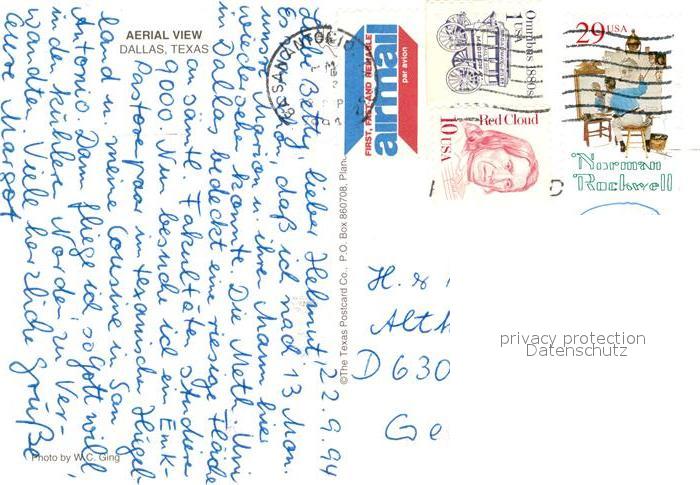 AERIAL VIEW
DALLAS, TEXAS
22.9.94
Liebe Betty, lieber Helmut,
Es ist schön, daß ich nach 13 Mon.
unsre Marion u. ihren Mann hier
wiedersehen konnte. Die Meth. Uni
in Dallas bedeckt eine riesige Fläche
an sämtl. Fakultäten studieren
9000. Nun besuche ich ein Emk-
Pastorepaar im texanischen Hügel-
land u. meine Cousine in San
Antonio. Dann fliege ich so Gott will
in den kühlen Norden zu Ver-
wandten. Viele herzliche Grüße
Eure Margot
Photo by W.C. Ging
©The Texas Postcard Co., P.O. Box 860708, Plan
FIRST, FAST AND RELIABLE
airmail
par avion
SAN ANTONIO
Omnibus 1880s
1
USA
Red Cloud
10 USA
29 USA
Norman
Rockwell
H. &
Alt
D 630
Ge
privacy protection
Datenschutz